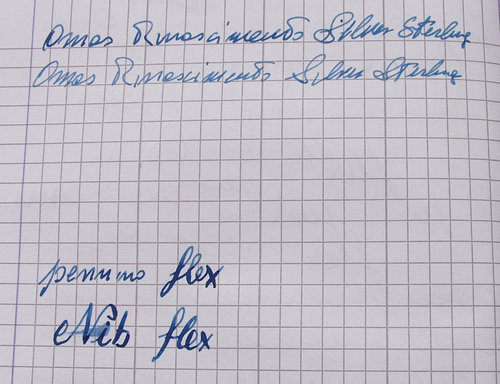 Omas Rinascimento Silver Sterling
Omas Rinascimento Silver Sterling
pennino flex
Nib flex